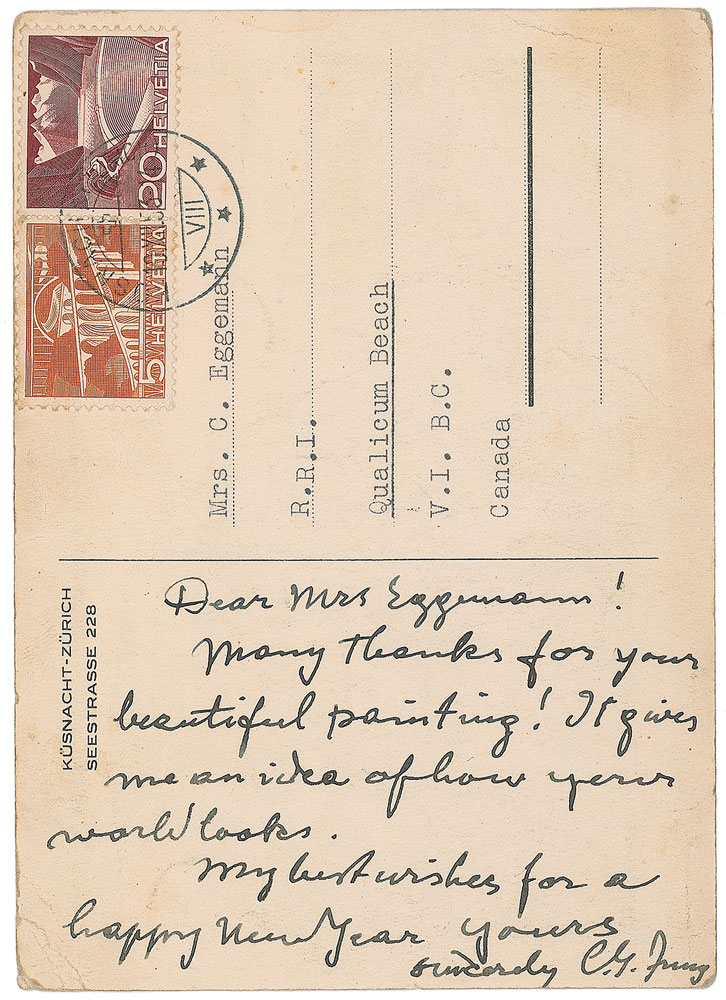 HELVETIA
20
HELVETIA
5
VIII
Mrs. C. Eggemann
R.R.I.
Qualicum Beach
V.I. B.C.
Canada
KÜSNACHT-ZÜRICH
SEESTRASSE 228
Dear Mrs Eggemann!
Many thanks for your
beautiful painting! It gives
me an idea of how your
world looks.
My best wishes for a
happy New Year yours
sincerely C.G. Jung